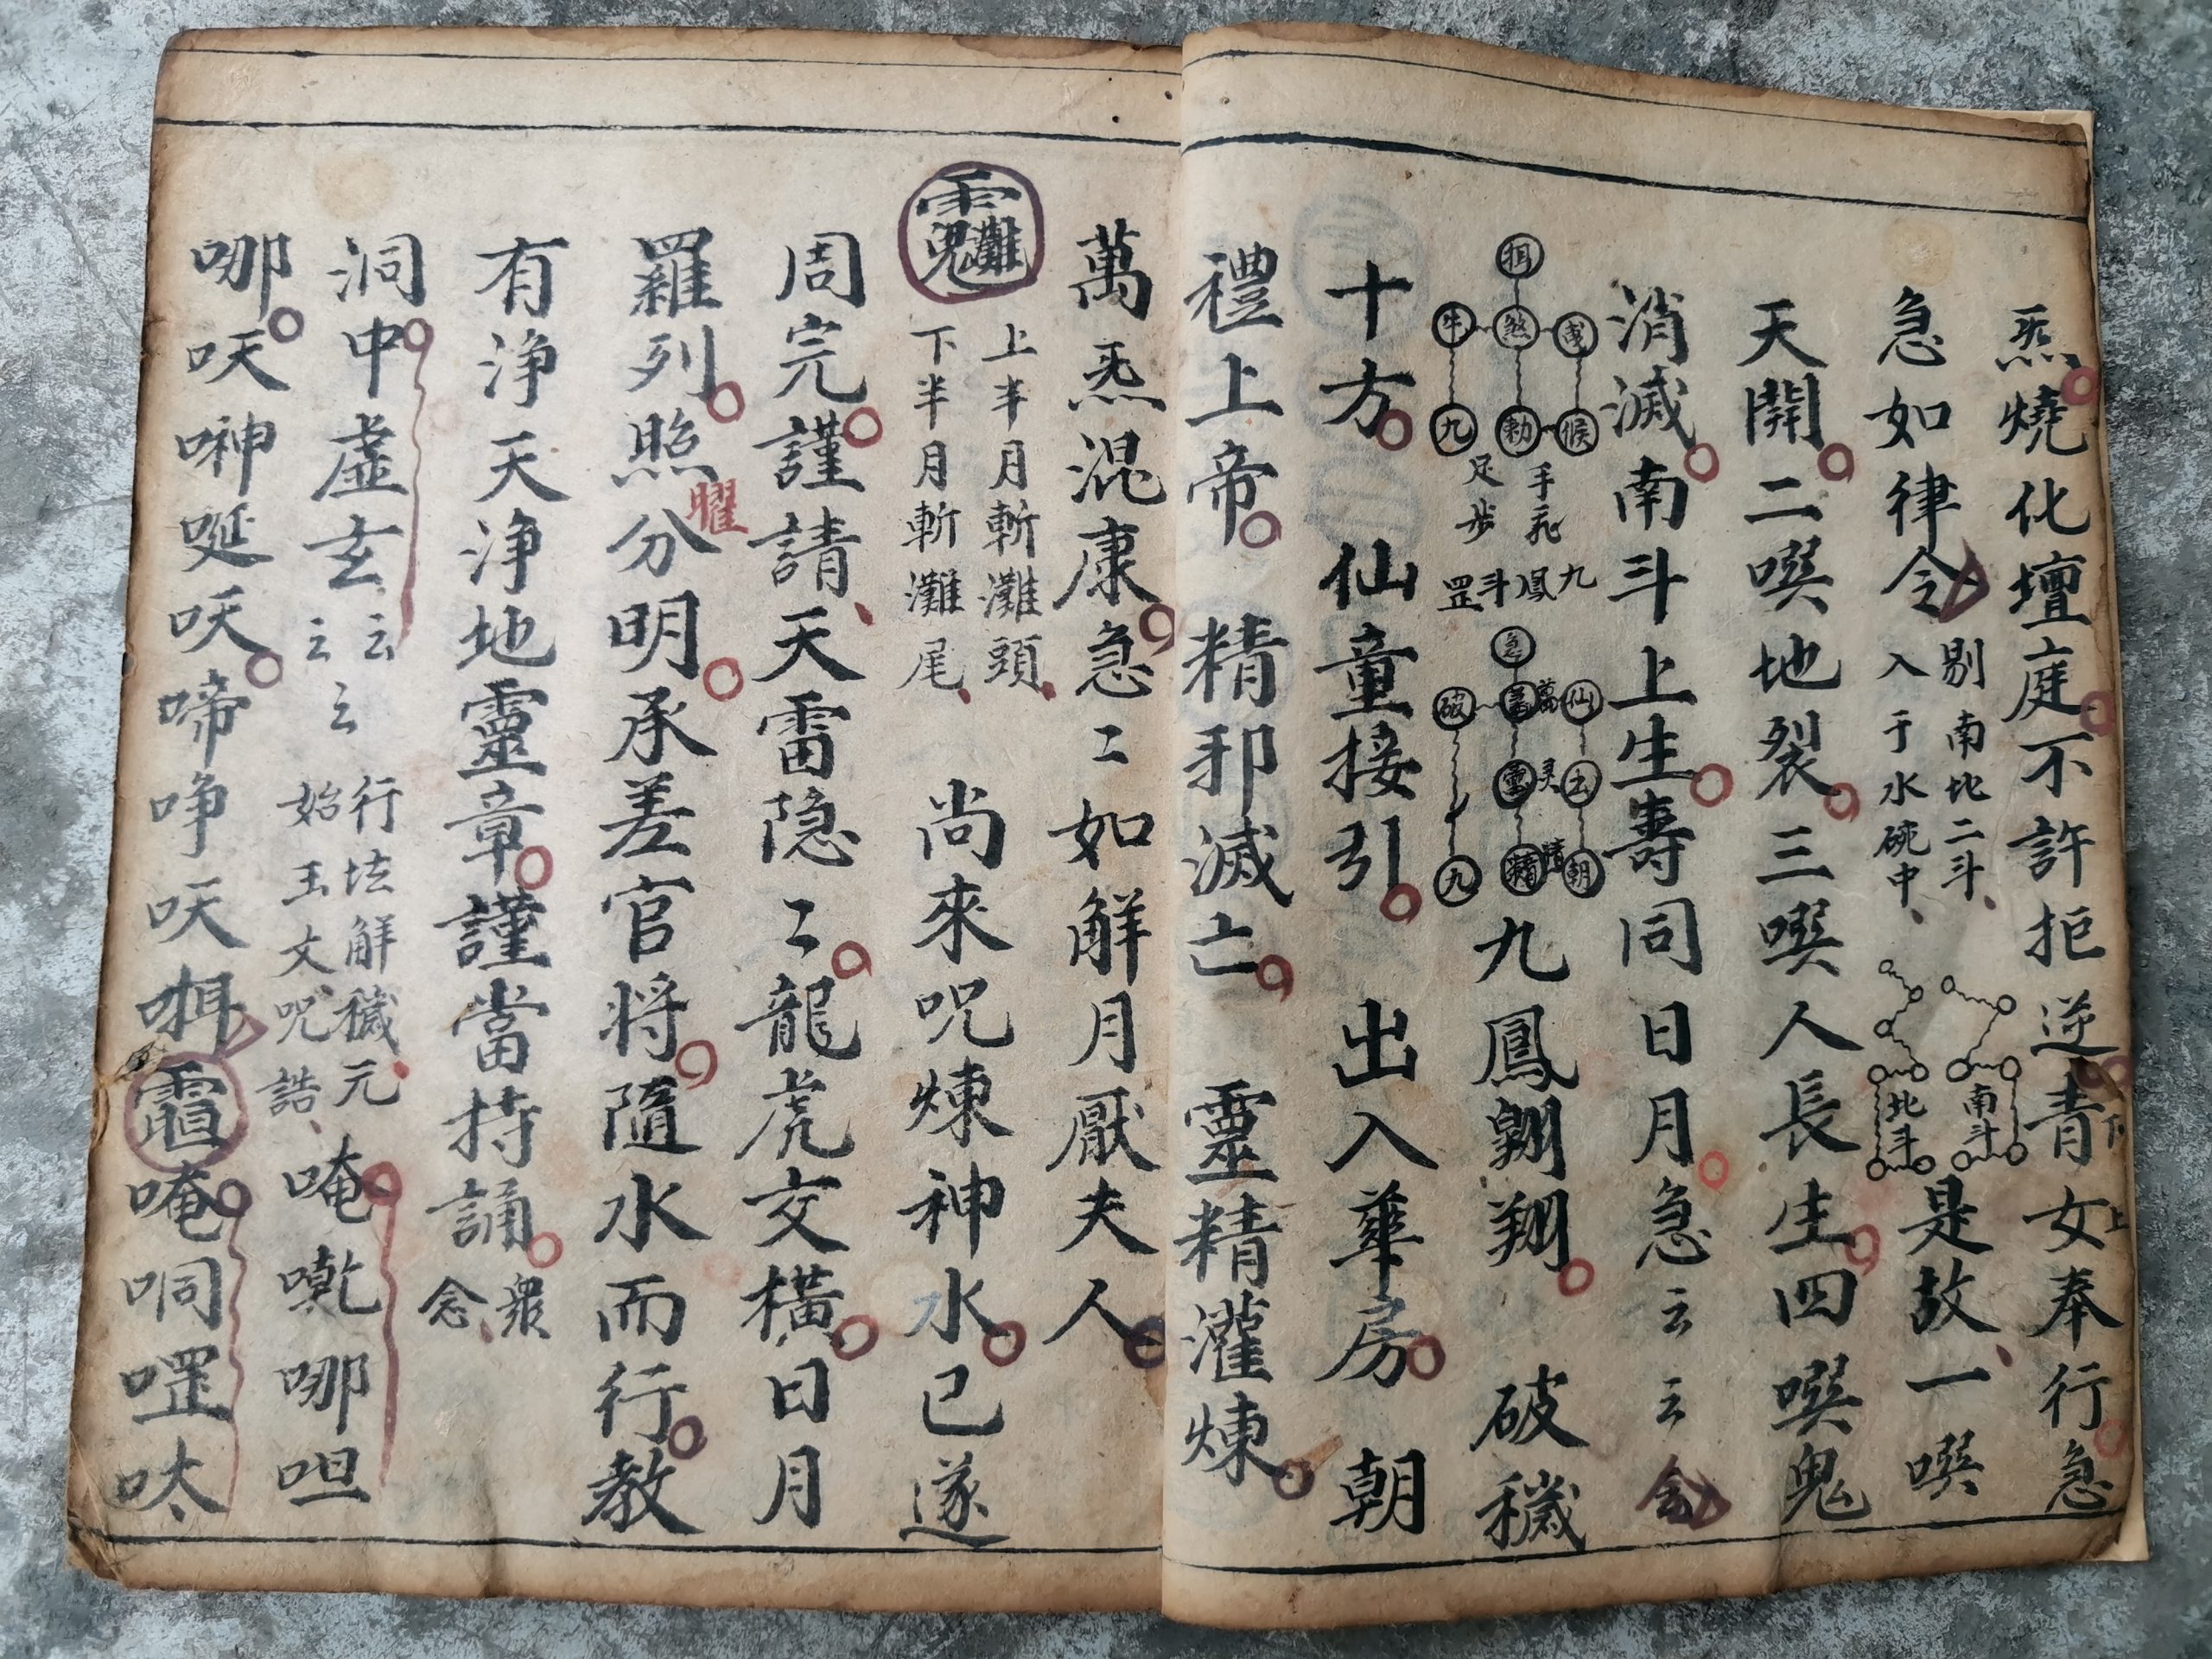 炁燒化壇庭不許拒逆青女奉行急
下上
急如律令
剔南北二斗
入于水碗中
南斗
北斗
是故一噀
天開二噀地裂三噀人長生四噀鬼
消滅南斗上生壽同日月急云云
九鳳翺翔 破穢
手 足步
九鳳 斗罡
十方 仙童接引 出入華房 朝
禮上帝 精邪滅亡 靈精灌煉
萬炁混康急〻如解月厭夫人
上半月斬灘頭
下半月斬灘尾
尚來咒煉神水已遂
周完謹請天雷隐〻龍虎交橫日月
羅列照分明承差官将隨水而行教
曜
有淨天淨地靈章謹當持誦
衆念
洞中虛玄云云云
行法解穢元
始玉文咒誥
唵㘕哪呾
哪㕭呻唌㕭啼㖓㕭㖇
唵哃㘡呔